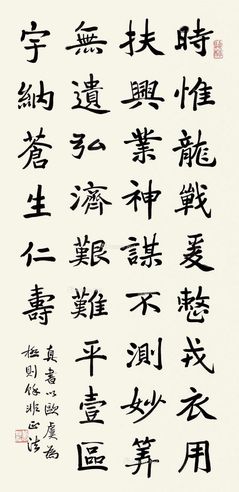 時惟龍戰爰整戎衣用
扶興業神謀不測妙筭
無遺弘濟艱難平壹區
宇納蒼生仁壽
真書以歐虞為
極則餘非正法